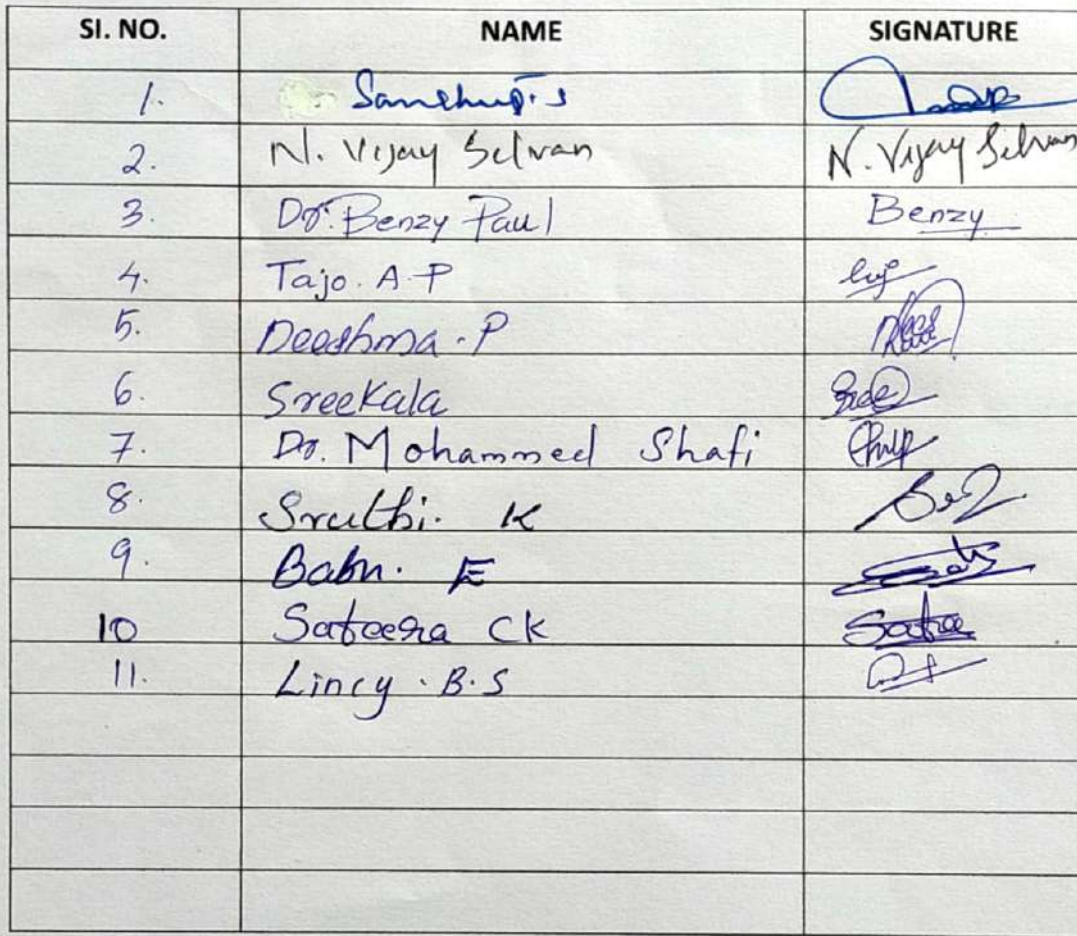 SI. NO. NAME SIGNATURE
1.
2. N. Vijay Selvan N. Vijay Selvan
3. Dr. Benzy Paul Benzy
4. Tajo. A. P
5. Deeshma. P
6. Sreekala
7. Dr. Mohammed Shafi
8. Sruthi. K
9. Babu. E
10 Safeera CK
11. Lincy. B. S